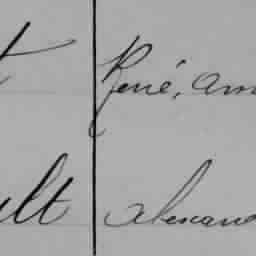 t René, Am
ult Alexan